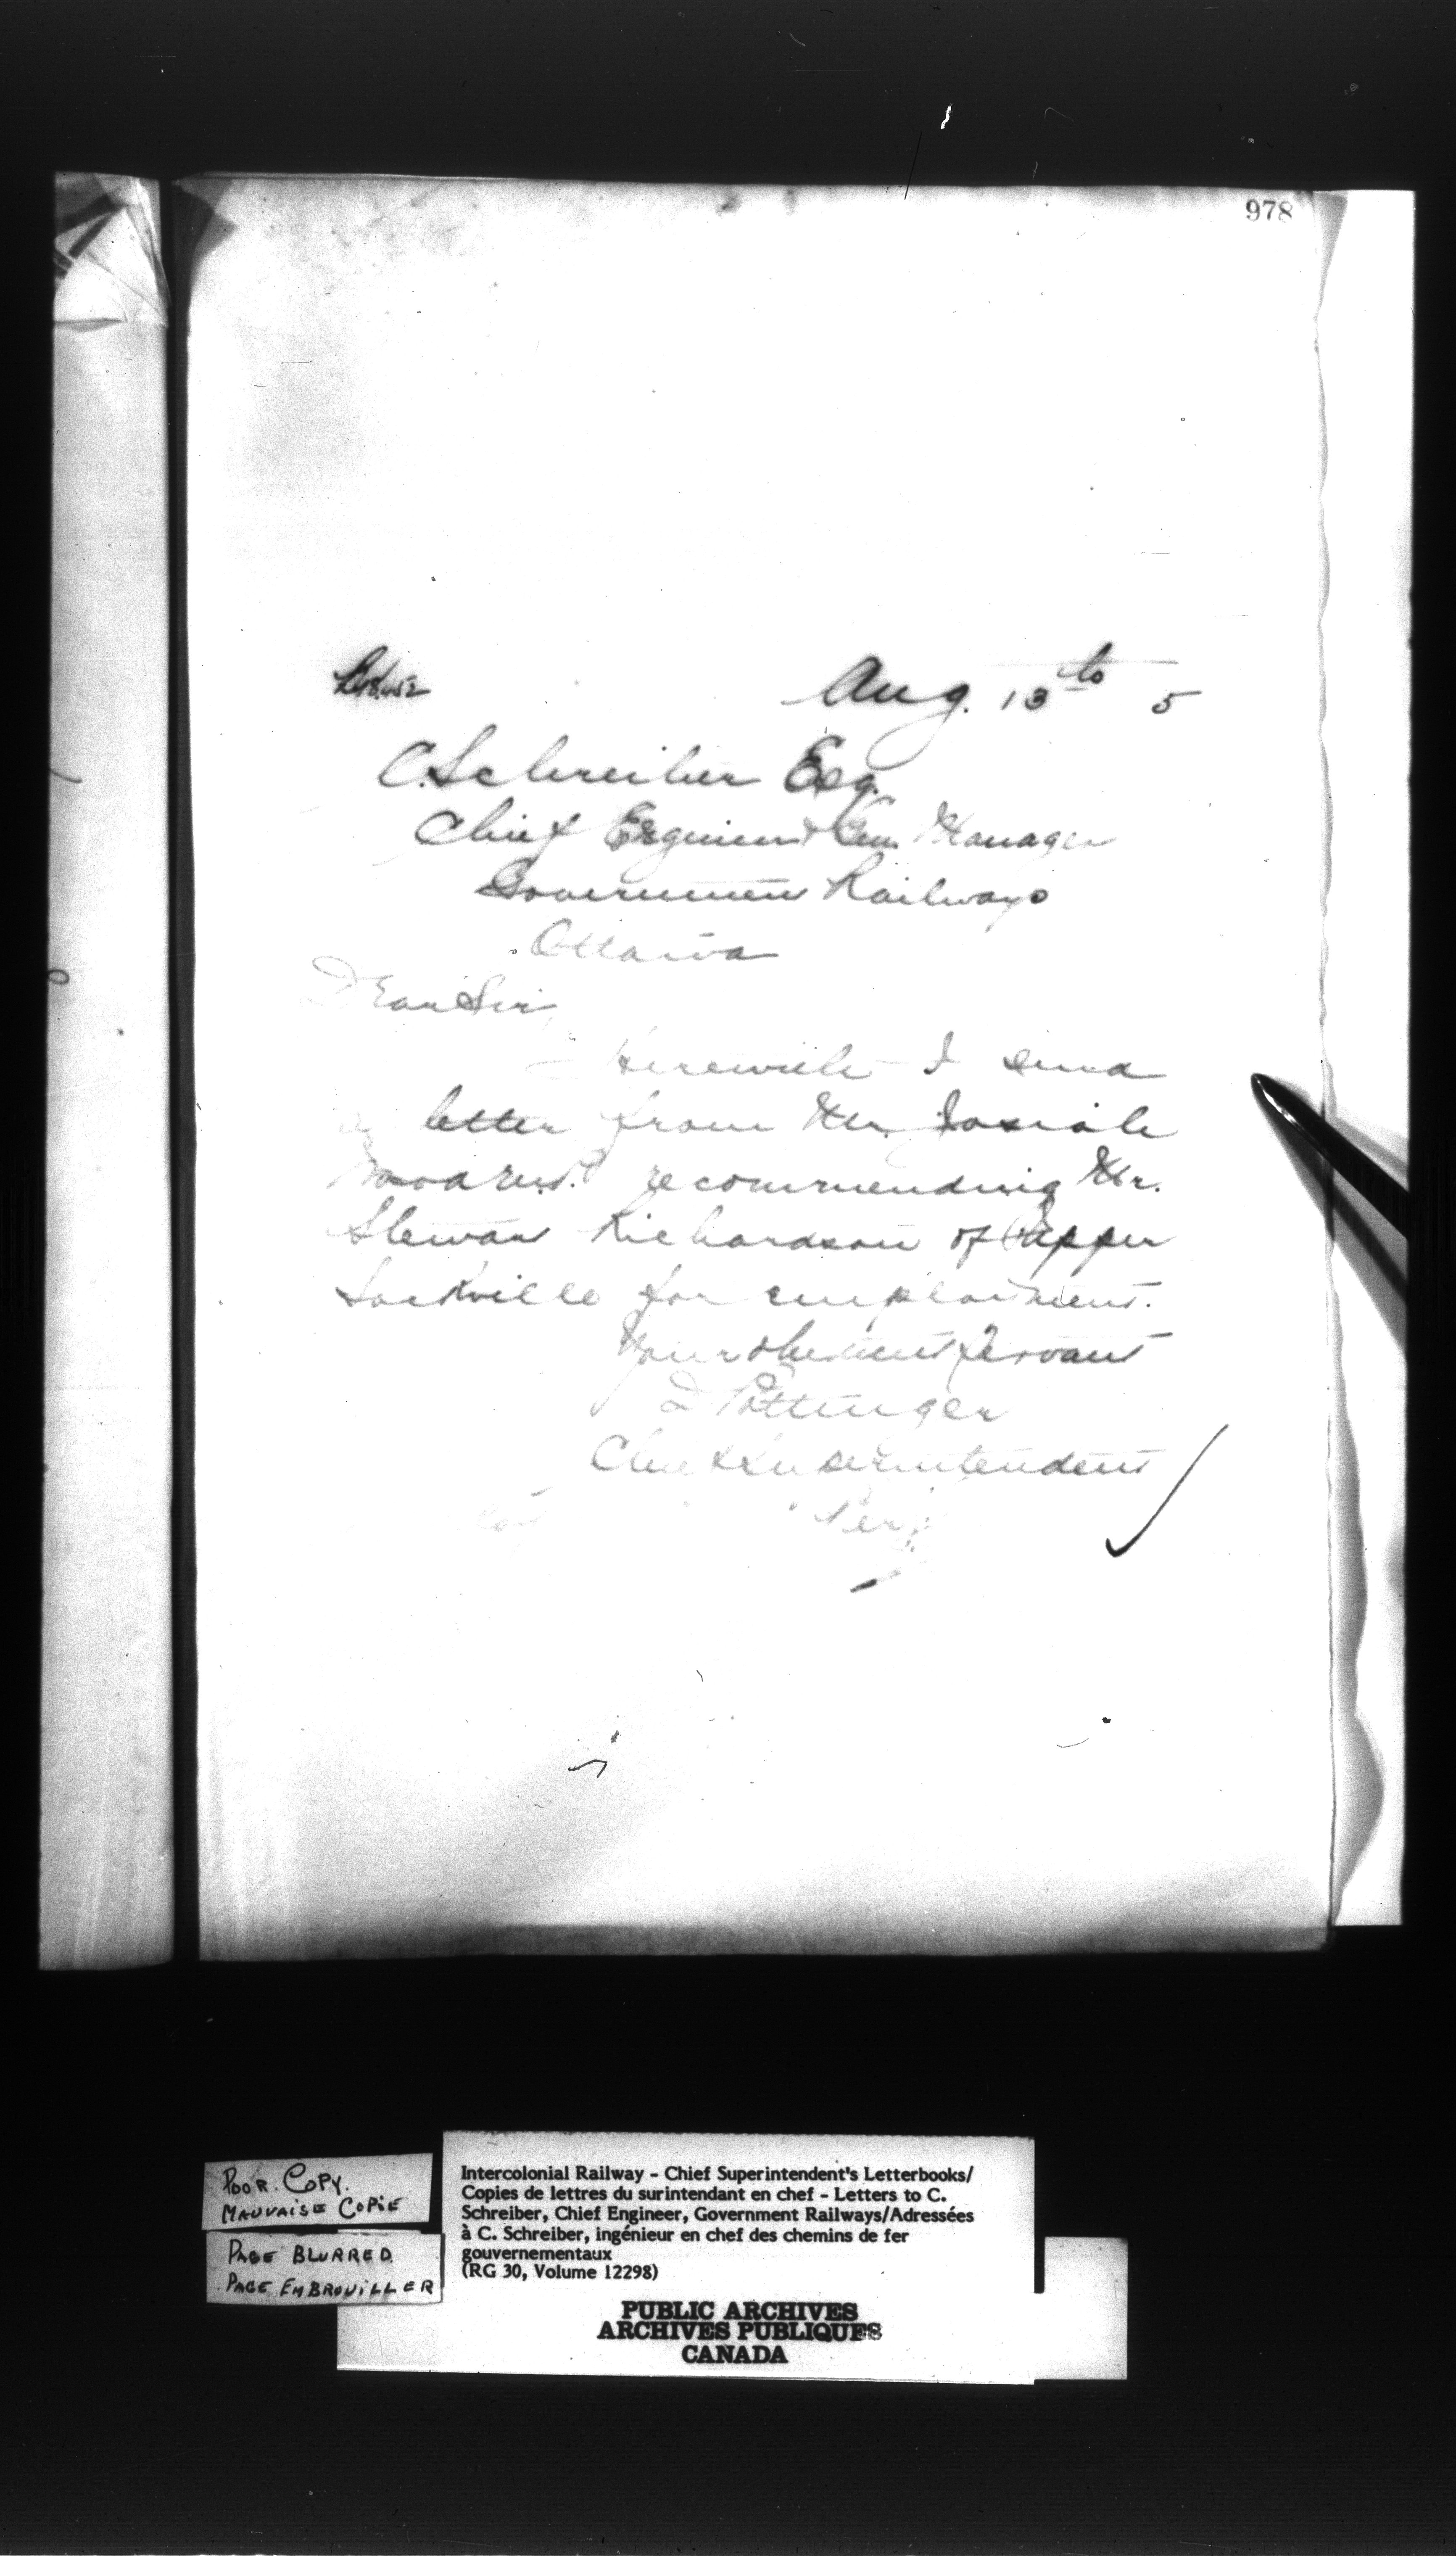 978
Aug. 13th 5
C. Schreiber Esq.
Chief Engineer & Gen. Manager
Government Railways
Ottawa
Dear Sir,
Herewith I send
a letter from Mr. Josiah
Wood M.P. recommending Mr.
Stewart Richardson of Upper
Sackville for employment.
Your obedient Servant
D Pottinger
Chief Superintendent
Per
POOR. COPY.
MAUVAISE COPIE
PAGE BLURRED.
PAGE EMBROUILLER
Intercolonial Railway - Chief Superintendent's Letterbooks/
Copies de lettres du surintendant en chef - Letters to C.
Schreiber, Chief Engineer, Government Railways/Adressées
à C. Schreiber, ingénieur en chef des chemins de fer
gouvernementaux
(RG 30, Volume 12298)
PUBLIC ARCHIVES
ARCHIVES PUBLIQUES
CANADA